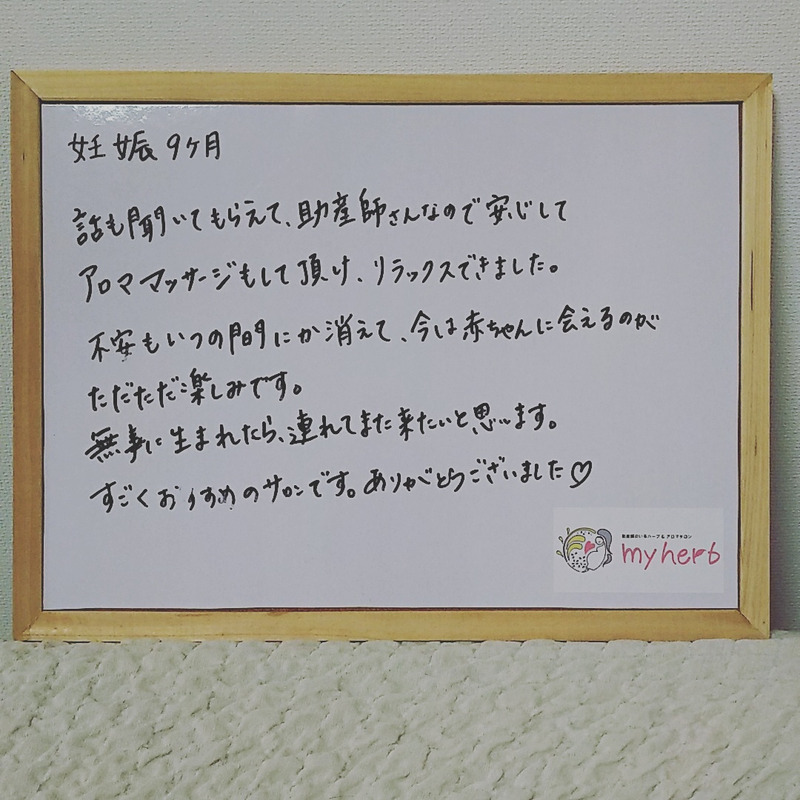 妊娠9ヶ月
話も聞いてもらえて、助産師さんなので安心して
アロママッサージもして頂け、リラックスできました。
不安もいつの間にか消えて、今は赤ちゃんに会えるのが
ただただ楽しみです。
無事に生まれたら、連れてまた来たいと思います。
すごくおすすめのサロンです。ありがとうございました♡
助産師のいるハーブ&アロマサロン
my herb